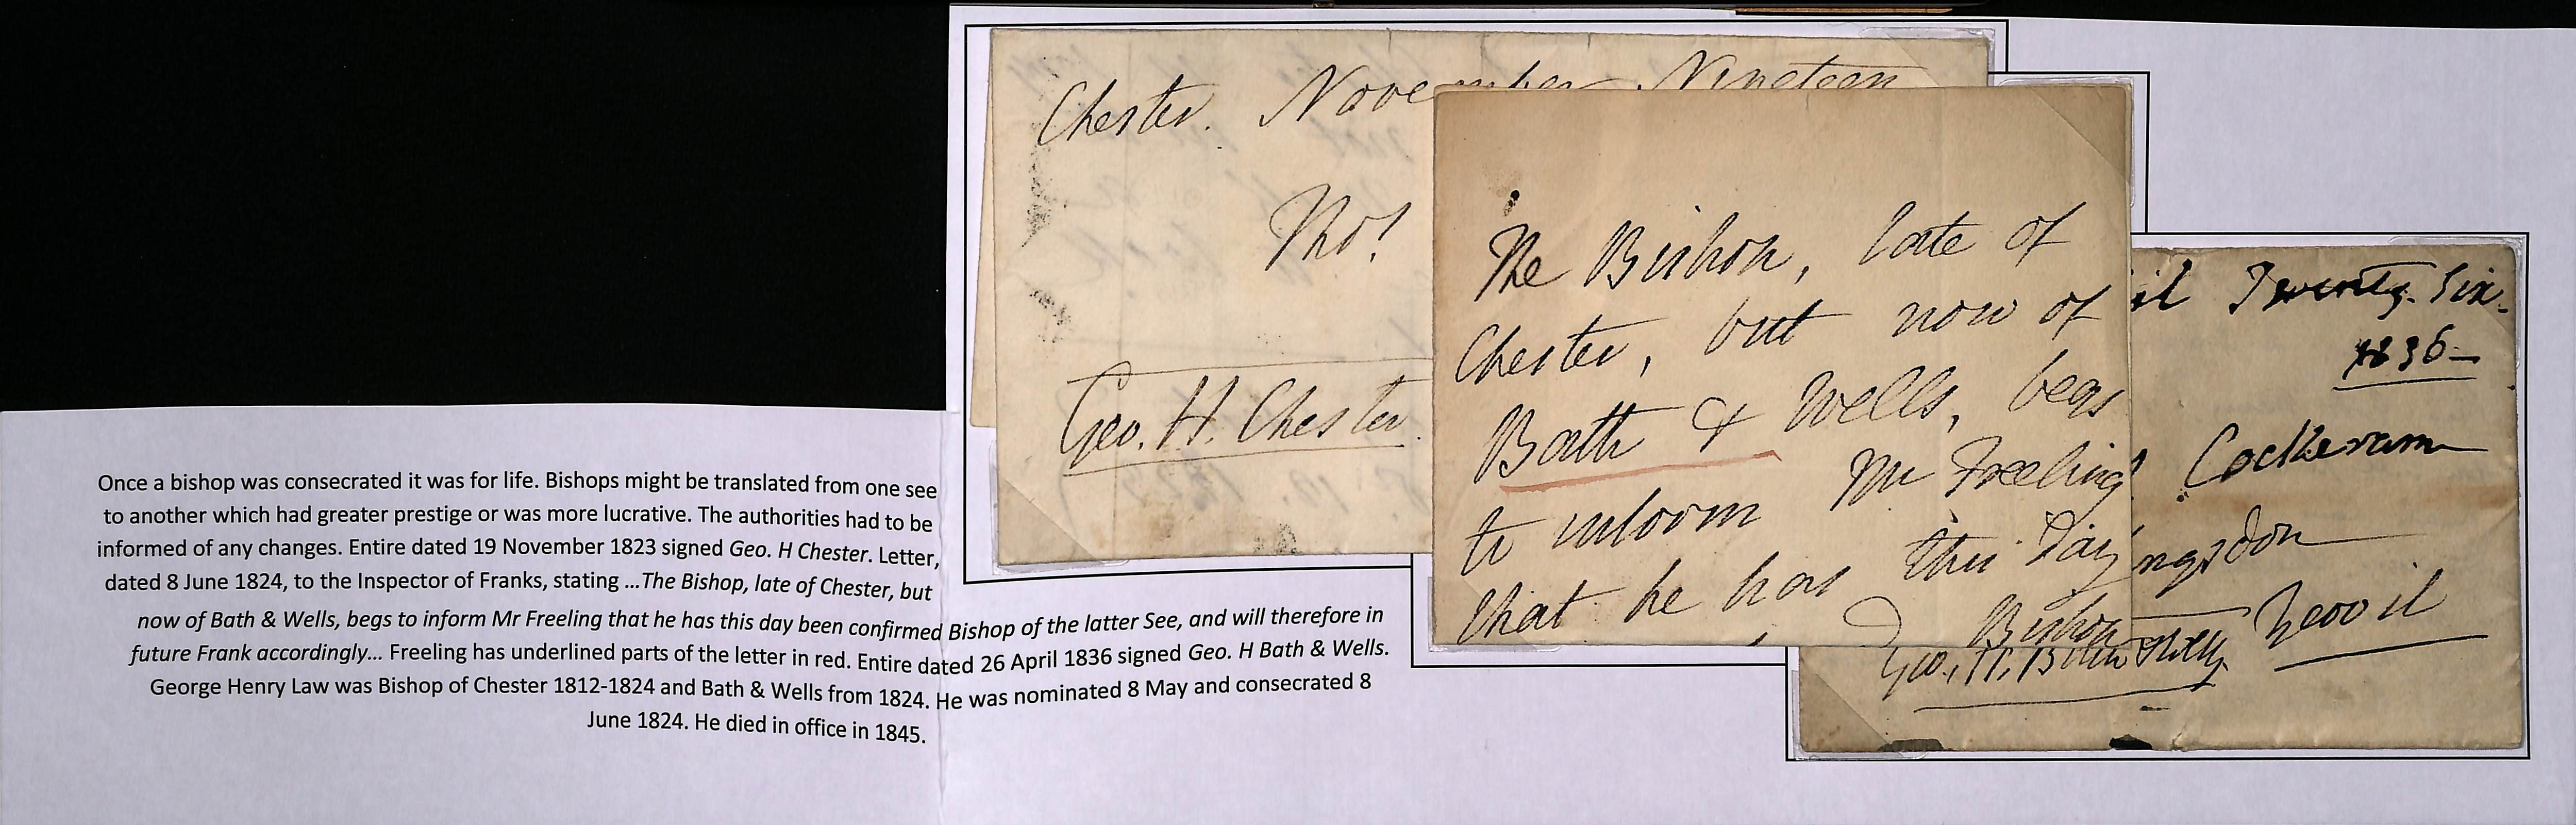 Once a bishop was consecrated it was for life. Bishops might be translated from one see
to another which had greater prestige or was more lucrative. The authorities had to be
informed of any changes. Entire dated 19 November 1823 signed Geo. H Chester. Letter,
dated 8 June 1824, to the Inspector of Franks, stating ...The Bishop, late of Chester, but
now of Bath & Wells, begs to inform Mr Freeling that he has this day been confirmed Bishop of the latter See, and will therefore in
future Frank accordingly... Freeling has underlined parts of the letter in red. Entire dated 26 April 1836 signed Geo. H Bath & Wells.
George Henry Law was Bishop of Chester 1812-1824 and Bath & Wells from 1824. He was nominated 8 May and consecrated 8
June 1824. He died in office in 1845.
Chester. November Nineteen
Tho!
Geo. H. Chester
The Bishop, late of
Chester, but now of
Bath & Wells, begs
to inform Mr Freeling
that he has this Day
Bishop
il Twenty Six
1836
Cockeram
ngsdon
Yeovil
Geo. H. Bath & Wells